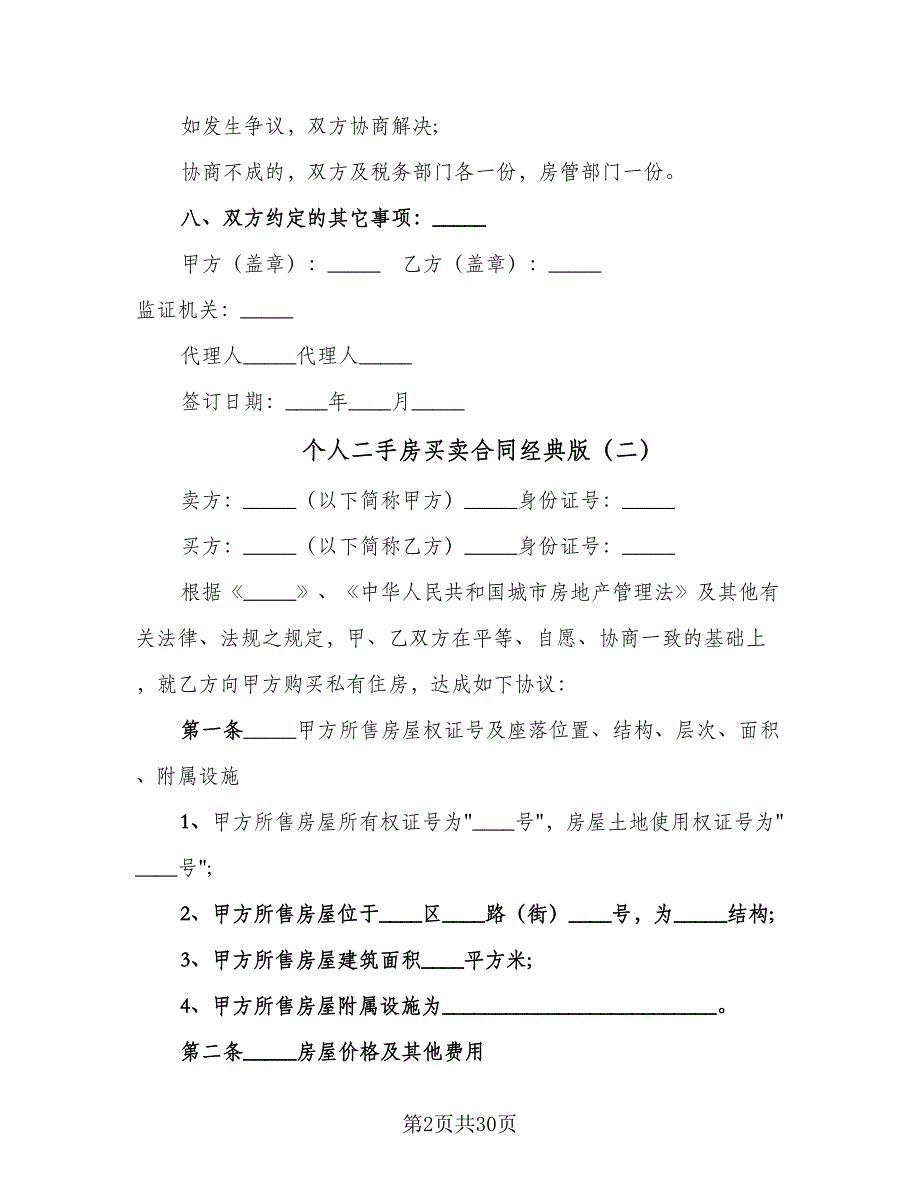 如发生争议，双方协商解决;
协商不成的，双方及税务部门各一份，房管部门一份。
八、双方约定的其它事项：_____
甲方（盖章）：_____ 乙方（盖章）：_____
监证机关：_____
代理人_____代理人_____
签订日期：____年____月_____
个人二手房买卖合同经典版（二）
卖方：_____（以下简称甲方）_____身份证号：_____
买方：_____（以下简称乙方）_____身份证号：_____
根据《_____》、《中华人民共和国城市房地产管理法》及其他有
关法律、法规之规定，甲、乙双方在平等、自愿、协商一致的基础上
，就乙方向甲方购买私有住房，达成如下协议：
第一条_____甲方所售房屋权证号及座落位置、结构、层次、面积
、附属设施
1、甲方所售房屋所有权证号为"____号"，房屋土地使用权证号为"
____号";
2、甲方所售房屋位于____区____路（街）____号，为_____结构;
3、甲方所售房屋建筑面积____平方米;
4、甲方所售房屋附属设施为__________________________。
第二条_____房屋价格及其他费用
第2页共30页